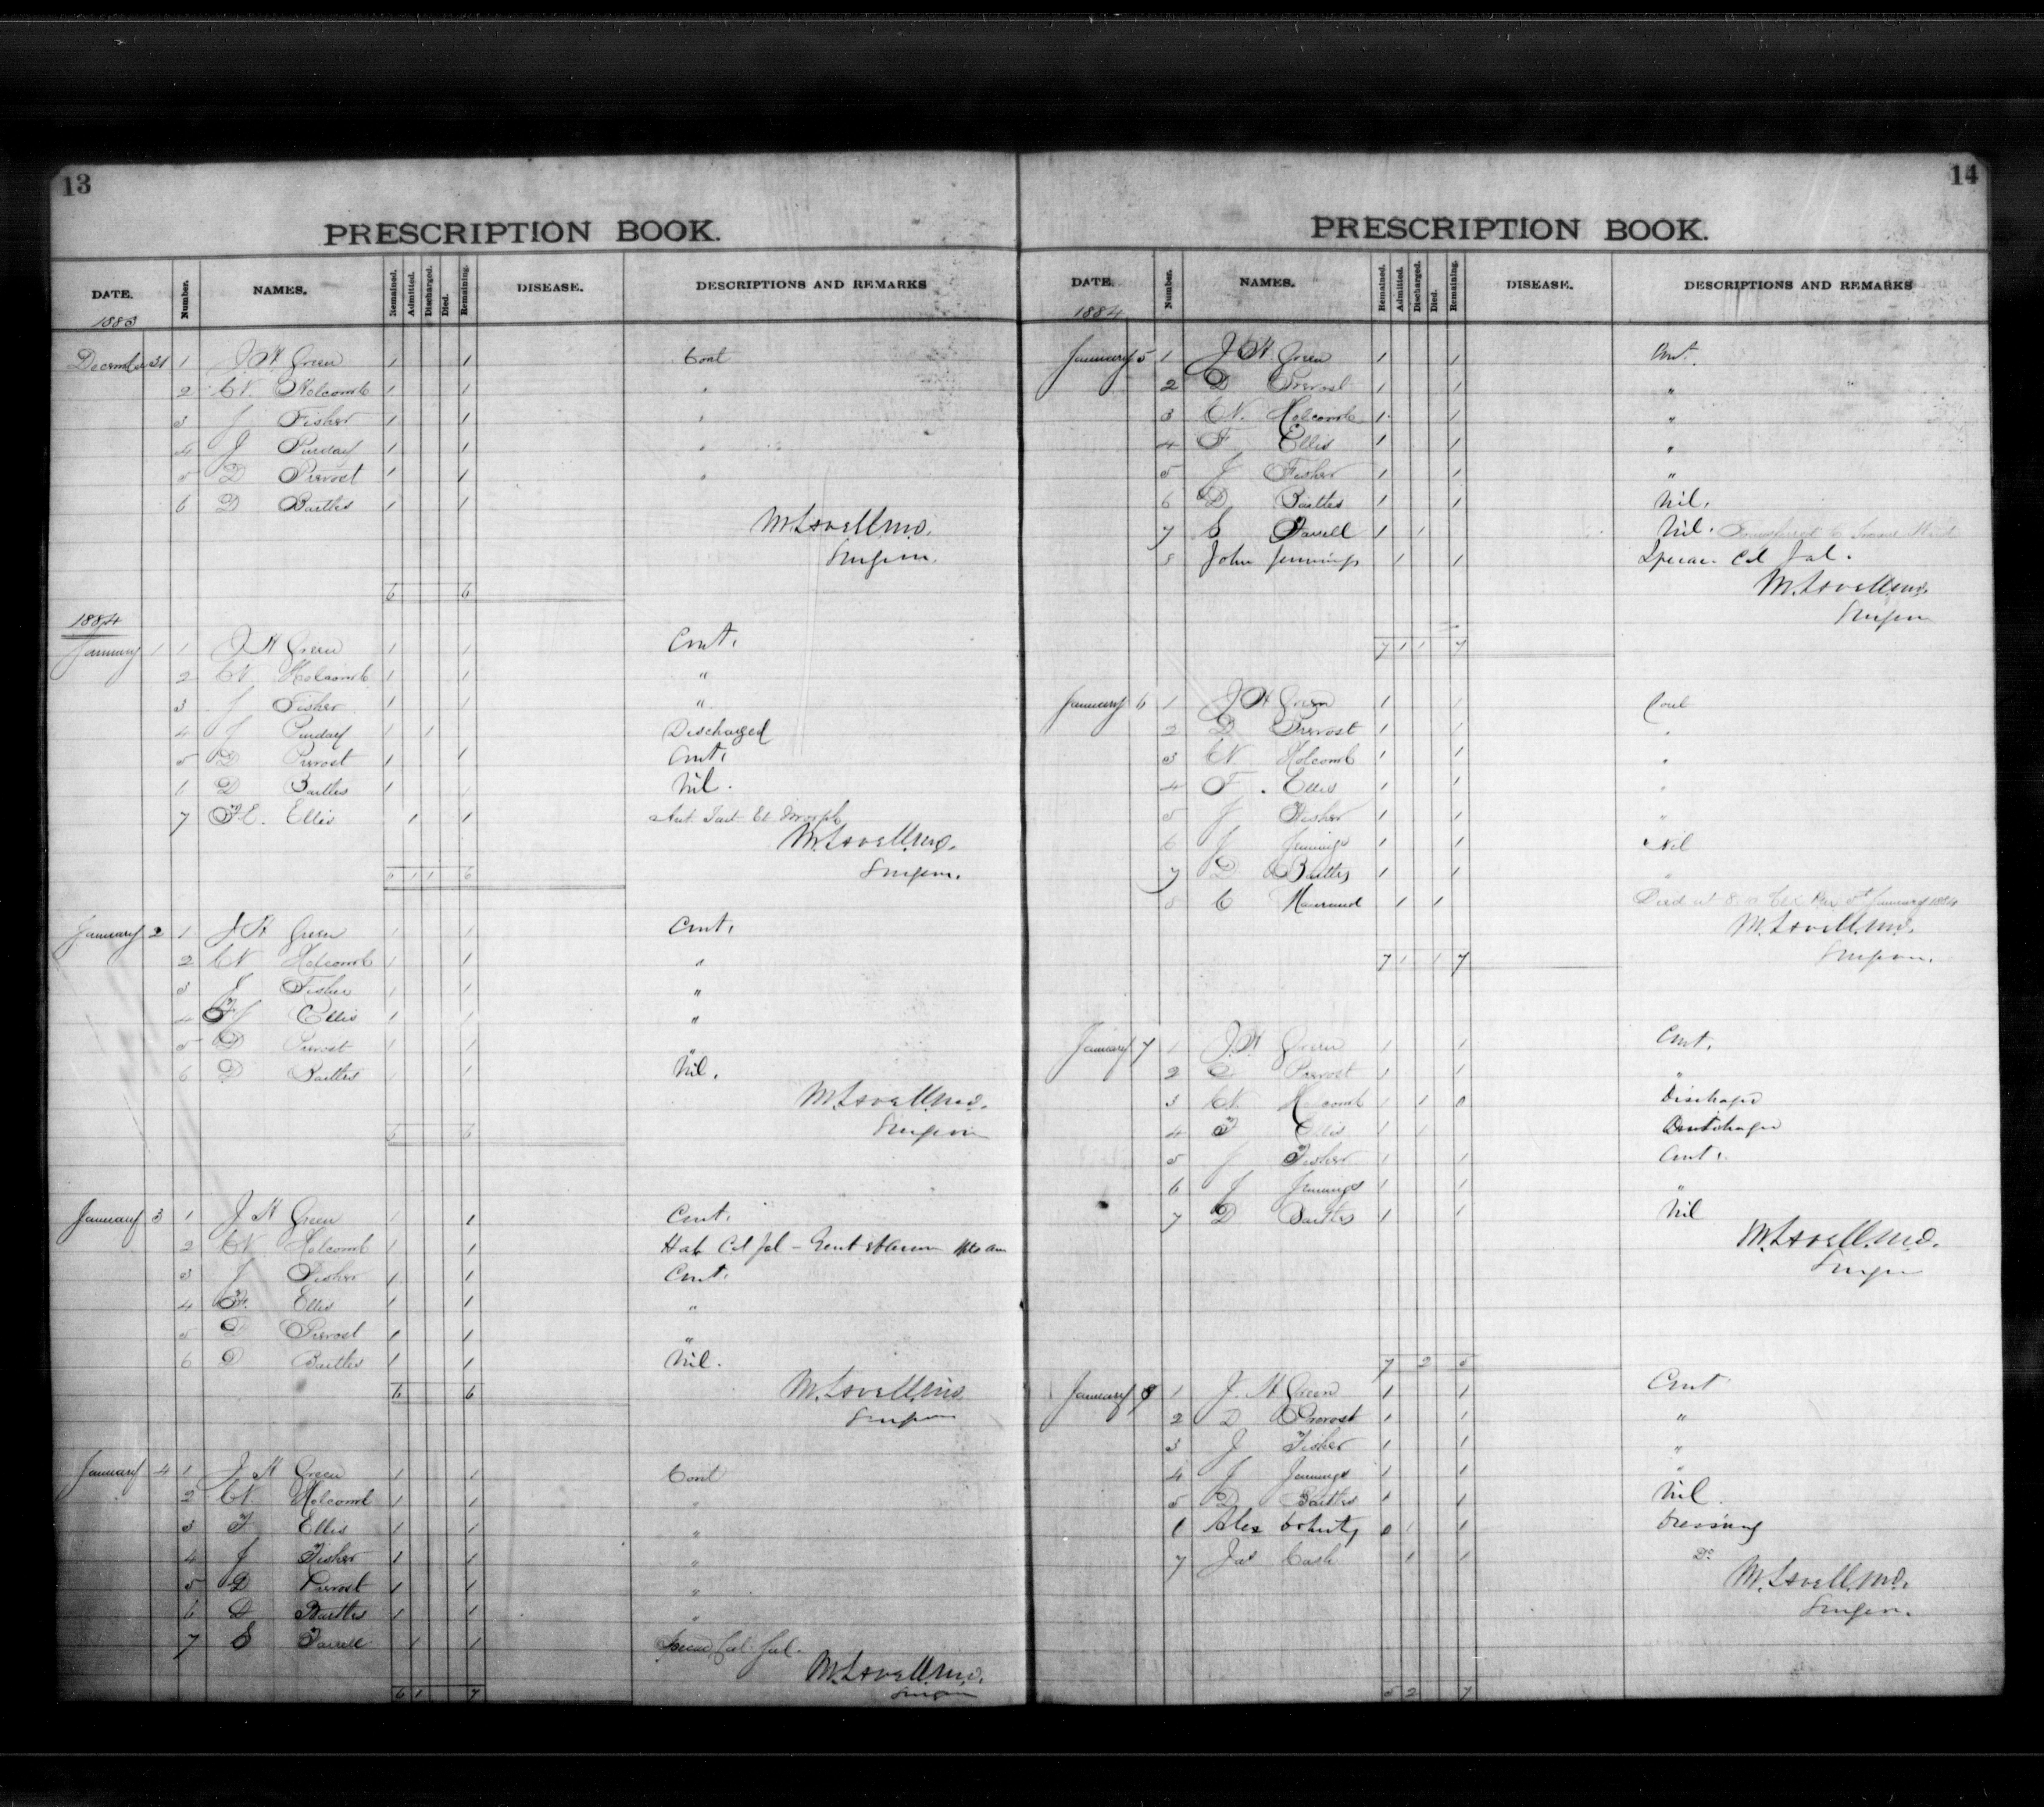 13
PRESCRIPTION BOOK.
DATE. Number. NAMES. Remained. Admitted. Discharged. Died. Remaining. DISEASE. DESCRIPTIONS AND REMARKS
1883
December 31 1 J H Green 1 1 Cont
2 W. Holcomb 1 1 "
3 J Fisher 1 1 "
4 J Purday 1 1 "
5 D Prevost 1 1 "
6 D Bartles 1 1
M. Lavell M.D.
Surgeon.
6 6
1884
January 1 1 J H Green 1 1 Cont.
2 W Holcomb 1 1 "
3 J Fisher 1 1 "
4 J Purday 1 1 Discharged
5 D Prevost 1 1 Cont.
6 D Bartles 1 1 Nil.
7 F E. Ellis 1 1 Ant. Tart. Et Morph
M. Lavell M.D.
Surgeon.
6 1 1 6
January 2 1 J H Green 1 1 Cont.
2 W Holcomb 1 1 "
3 J Fisher 1 1 "
4 Ellis 1 1 "
5 D Prevost 1 1 "
6 D Bartles 1 1 Nil.
M. Lavell M.D.
Surgeon
6 6
January 3 1 J H Green 1 1 Cont.
2 W Holcomb 1 1 Hab Col Jal
3 J Fisher 1 1 Cont.
4 F. Ellis 1 1 "
5 D Prevost 1 1 "
6 D Bartles 1 1 Nil.
6 6 M. Lavell M.D.
Surgeon
January 4 1 J H Green 1 1 Cont
2 W. Holcomb 1 1 "
3 F Ellis 1 1 "
4 J Fisher 1 1 "
5 D Prevost 1 1 "
6 D Bartles 1 1 "
7 S Farrell 1 1 Ipecac Col. Jal.
M. Lavell M.D.
Surgeon
6 1 7
14
PRESCRIPTION BOOK.
DATE. Number. NAMES. Remained. Admitted. Discharged. Died. Remaining. DISEASE. DESCRIPTIONS AND REMARKS
1884
January 5 1 J H Green 1 1 Cont.
2 D Prevost 1 1 "
3 W. Holcomb 1 1 "
4 F Ellis 1 1 "
5 J Fisher 1 1 "
6 D Bartles 1 1 Nil.
7 S Farrell 1 1 Nil. Transferred to Insane Ward
8 John Jennings 1 1 Ipecac. Col Jal.
M. Lavell M.D.
Surgeon
7 1 1 7
January 6 1 J H Green 1 1 Cont
2 D Prevost 1 1 "
3 W Holcomb 1 1 "
4 F. Ellis 1 1 "
5 J Fisher 1 1 "
6 J Jennings 1 1 Nil
7 D Bartles 1 1 "
8 1 1 Died at 8 January 1884
M. Lavell M.D.
7 1 1 7 Surgeon.
January 7 1 J. H Green 1 1 Cont.
2 D Prevost 1 1 "
3 W. Holcomb 1 1 0 Discharged
4 F Ellis 1 1
5 J Fisher 1 1 Cont.
6 J Jennings 1 1 "
7 D Bartles 1 1 Nil
M. Lavell M.D.
Surgeon
7 2 5
January 8 1 J. H Green 1 1 Cont
2 D Prevost 1 1 "
3 J Fisher 1 1 "
4 J Jennings 1 1 "
5 D Bartles 1 1 Nil
6 Alex 0 1 1 Dressing
7 Jas Cash 1 1 Do
M. Lavell M.D.
Surgeon.
5 2 7